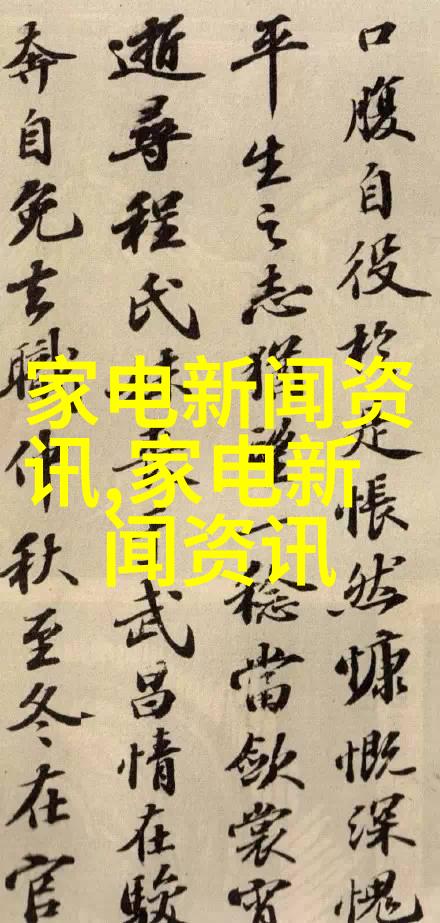 口腹自役於是悵然慷慨深愧
平生之志猶望一稔當斂裳宵
逝尋程氏妹喪于武昌情在駿
奔自免去職仲秋至冬在官
家电新闻资
讯,家电新
闻资讯